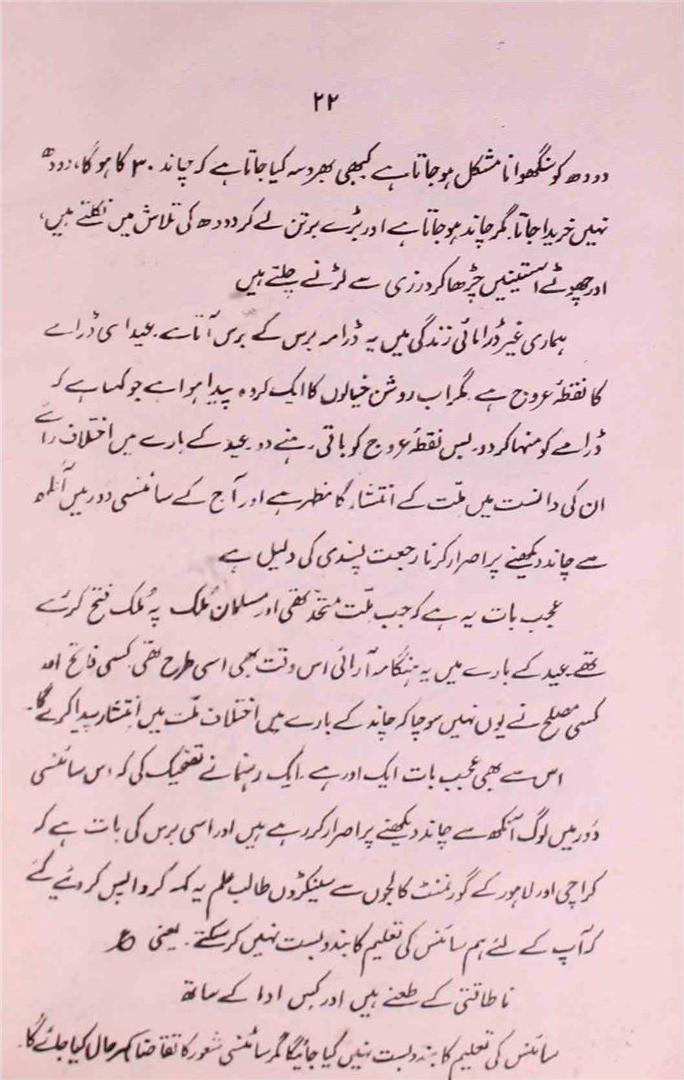 ۲۲
دودھ کو سنگھوانا مشکل ہو جاتا ہے کبھی بھروسہ کیا جاتا ہے کہ چاند ۳۰ کا ہو گا، دودھ
نہیں خریدا جاتا. مگر چاند ہو جاتا ہے اور بڑے برتن لے کر دودھ کی تلاش میں نکلتے ہیں،
اور چھوٹے آستینیں چڑھا کر درزی سے لڑنے چلتے ہیں
ہماری غیر ڈرامائی زندگی میں یہ ڈرامہ برس کے برس آتا ہے. عید اسی ڈرامے
کا نقطۂ عروج ہے. مگر اب روشن خیالوں کا ایک گروہ پیدا ہوا ہے جو کہتا ہے کہ
ڈرامے کو منہا کر دو. بس نقطۂ عروج کو باقی رہنے دو. عید کے بارے میں اختلاف رائے
ان کی دانست میں ملّت کے انتشار کا مظہر ہے اور آج کے سائنسی دور میں آنکھ
سے چاند دیکھنے پر اصرار کرنا رجعت پسندی کی دلیل ہے
عجب بات یہ ہے کہ جب ملّت متحد تھی اور مسلمان مُلک پہ مُلک فتح کرتے
تھے. عید کے بارے میں یہ ہنگامہ آرائی اس وقت بھی اسی طرح تھی. کسی فاتح اور
کسی مصلح نے یوں نہیں سوچا کہ چاند کے بارے میں اختلاف ملّت میں انتشار پیدا کرے گا۔
اس سے بھی عجب بات ایک اور ہے. ایک رہنما نے تضحیک کی کہ اس سائنسی
دور میں لوگ آنکھ سے چاند دیکھنے پر اصرار کر رہے ہیں اور اسی برس کی بات ہے کہ
کراچی اور لاہور کے گورنمنٹ کالجوں سے سینکڑوں طالب علم یہ کہہ کر واپس کر دیئے گئے
کہ آپ کے لئے ہم سائنس کی تعلیم کا بندوبست نہیں کر سکتے. یعنی ع
ناطاقتی کے طعنے ہیں اور کس ادا کے ساتھ
سائنس کی تعلیم کا بندوبست نہیں کیا جائیگا مگر سائنسی شعور کا تقاضا بہرحال کیا جائے گا.